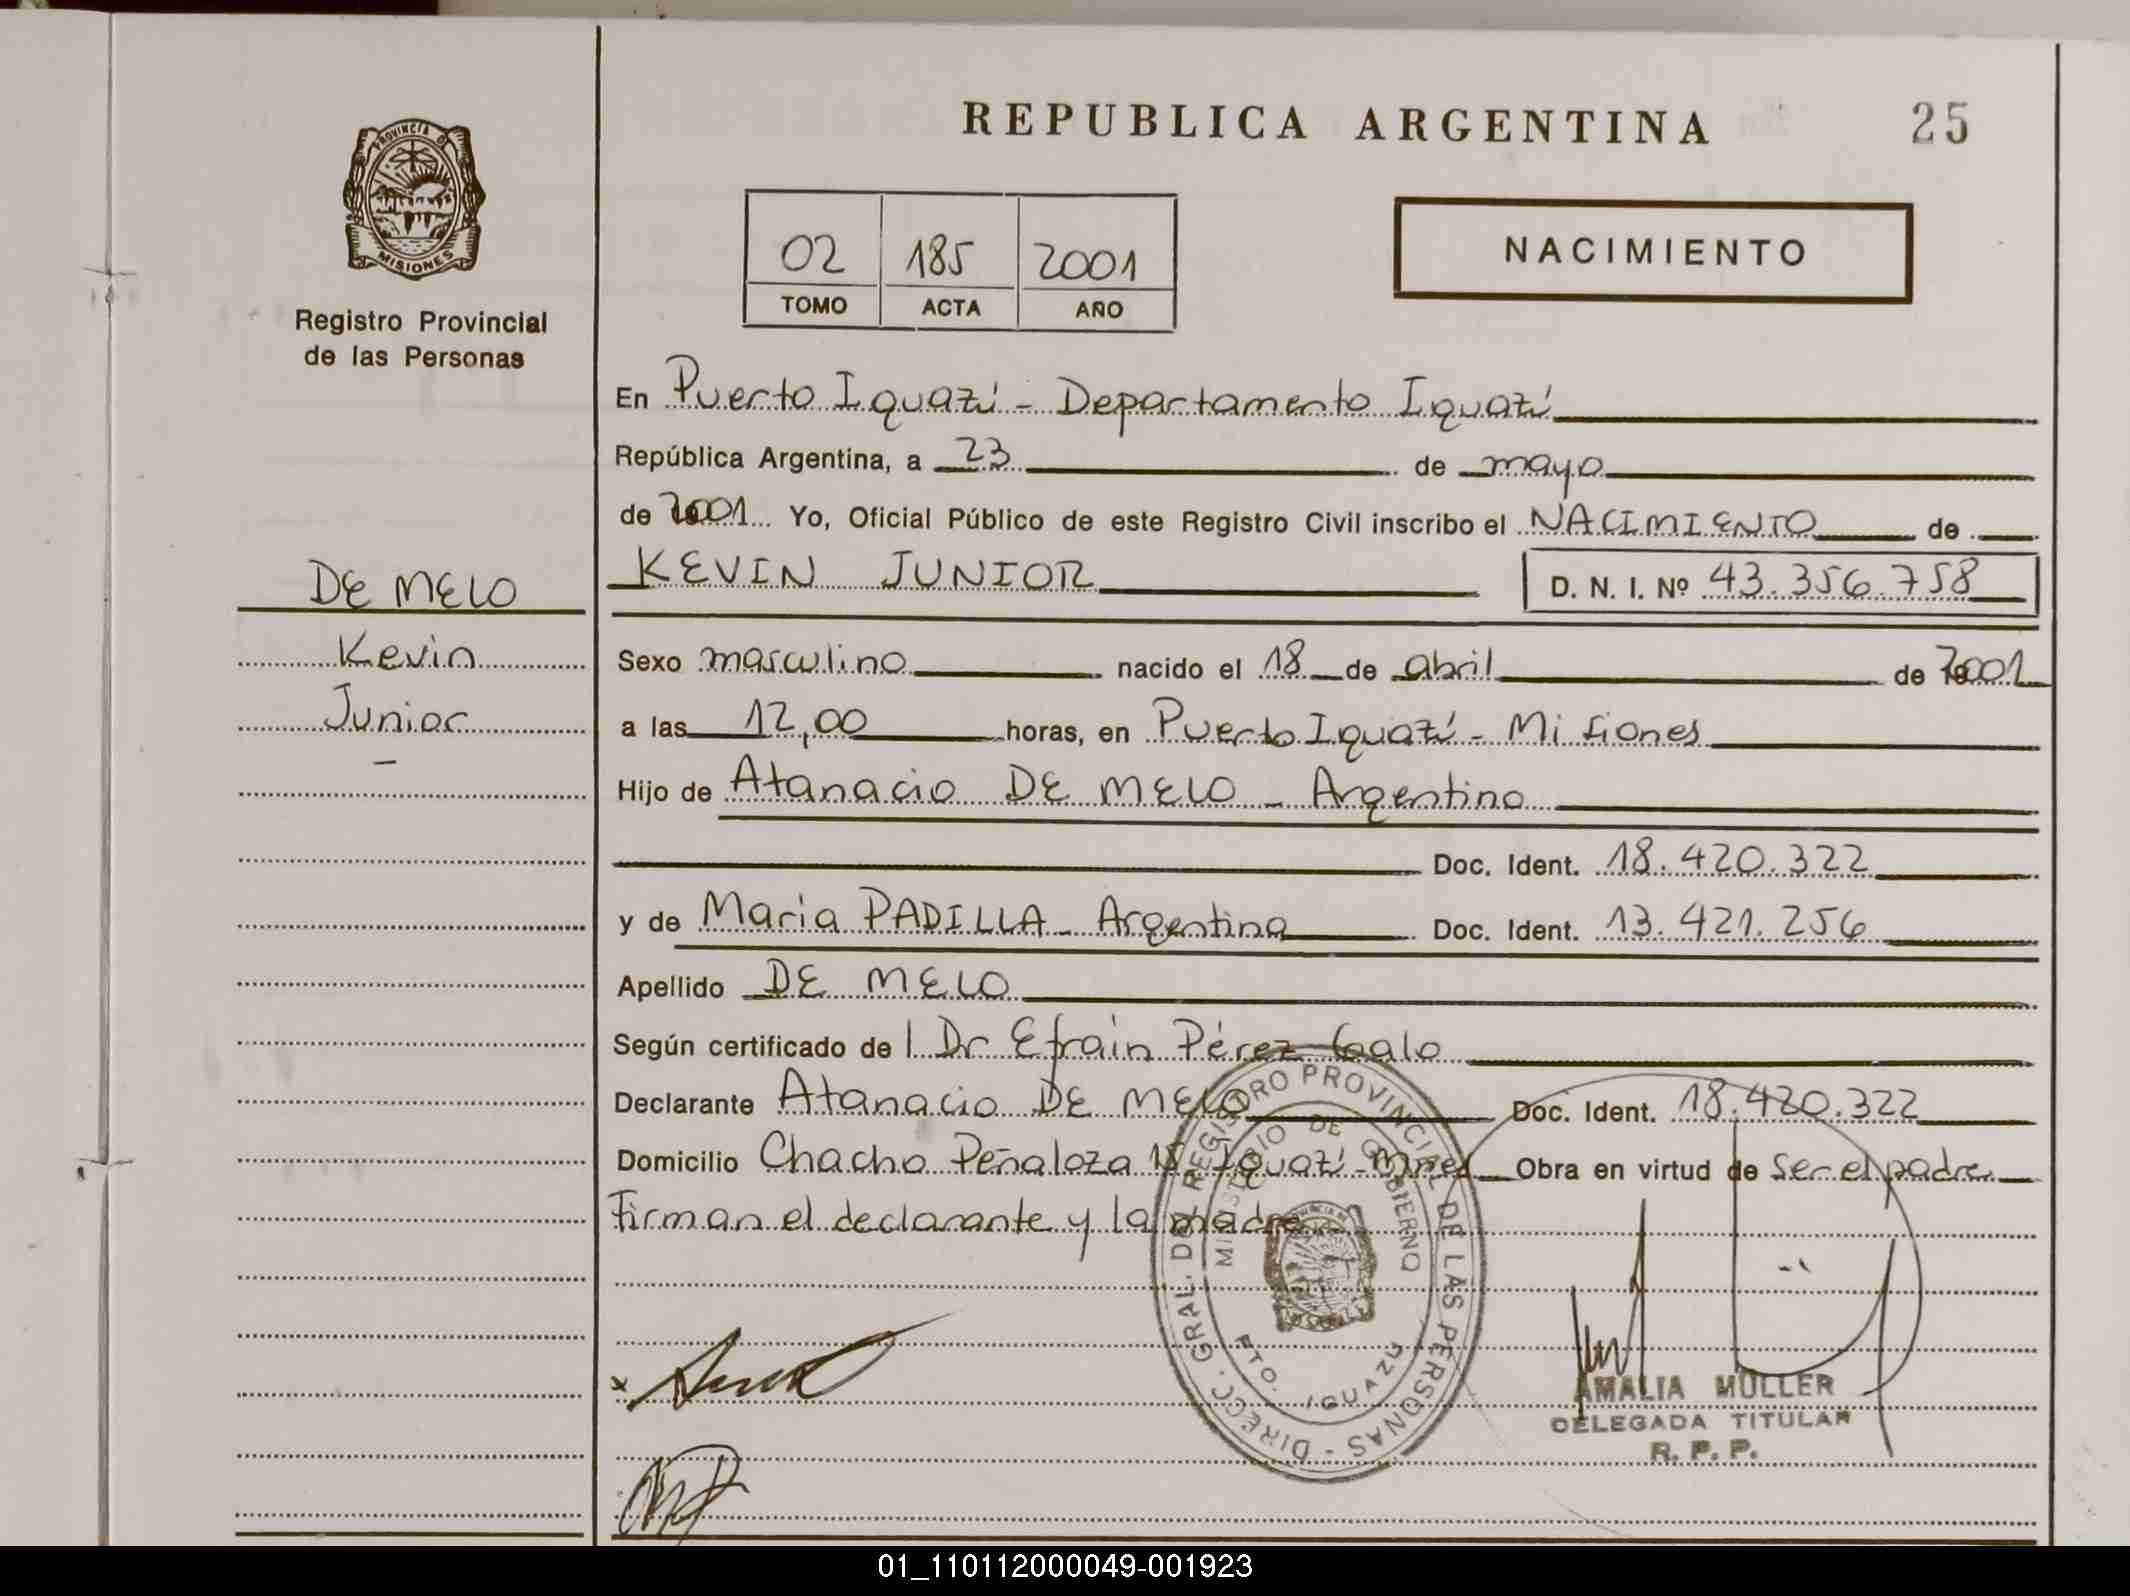 REPUBLICA ARGENTINA
25
PROVINCIA DE
MISIONES
Registro Provincial
de las Personas
02 185 2001
TOMO ACTA AÑO
NACIMIENTO
En Puerto Iguazú - Departamento Iguazú
República Argentina, a 23 de mayo
de 2001 Yo, Oficial Público de este Registro Civil inscribo el NACIMIENTO de
DE MELO
Kevin
Junior
KEVIN JUNIOR
D. N. I. Nº 43.356.758
Sexo masculino nacido el 18 de abril de 2001
a las 12,00 horas, en Puerto Iguazú - Misiones
Hijo de Atanacio DE MELO - Argentino
Doc. Ident. 18.420.322
y de Maria PADILLA - Argentina Doc. Ident. 13.421.256
Apellido DE MELO
Según certificado de l Dr Efraín Pérez Galo
Declarante Atanacio DE MELO Doc. Ident. 18.420.322
Domicilio Chacho Peñaloza 15 Iguazú - Mnes Obra en virtud de ser el padre
Firman el declarante y la madre
DIRECC. GRAL. DEL REGISTRO PROVINCIAL DE LAS PERSONAS -
MINISTERIO DE GOBIERNO
PTO. IGUAZU
AMALIA MULLER
DELEGADA TITULAR
R. P. P.
01_110112000049-001923